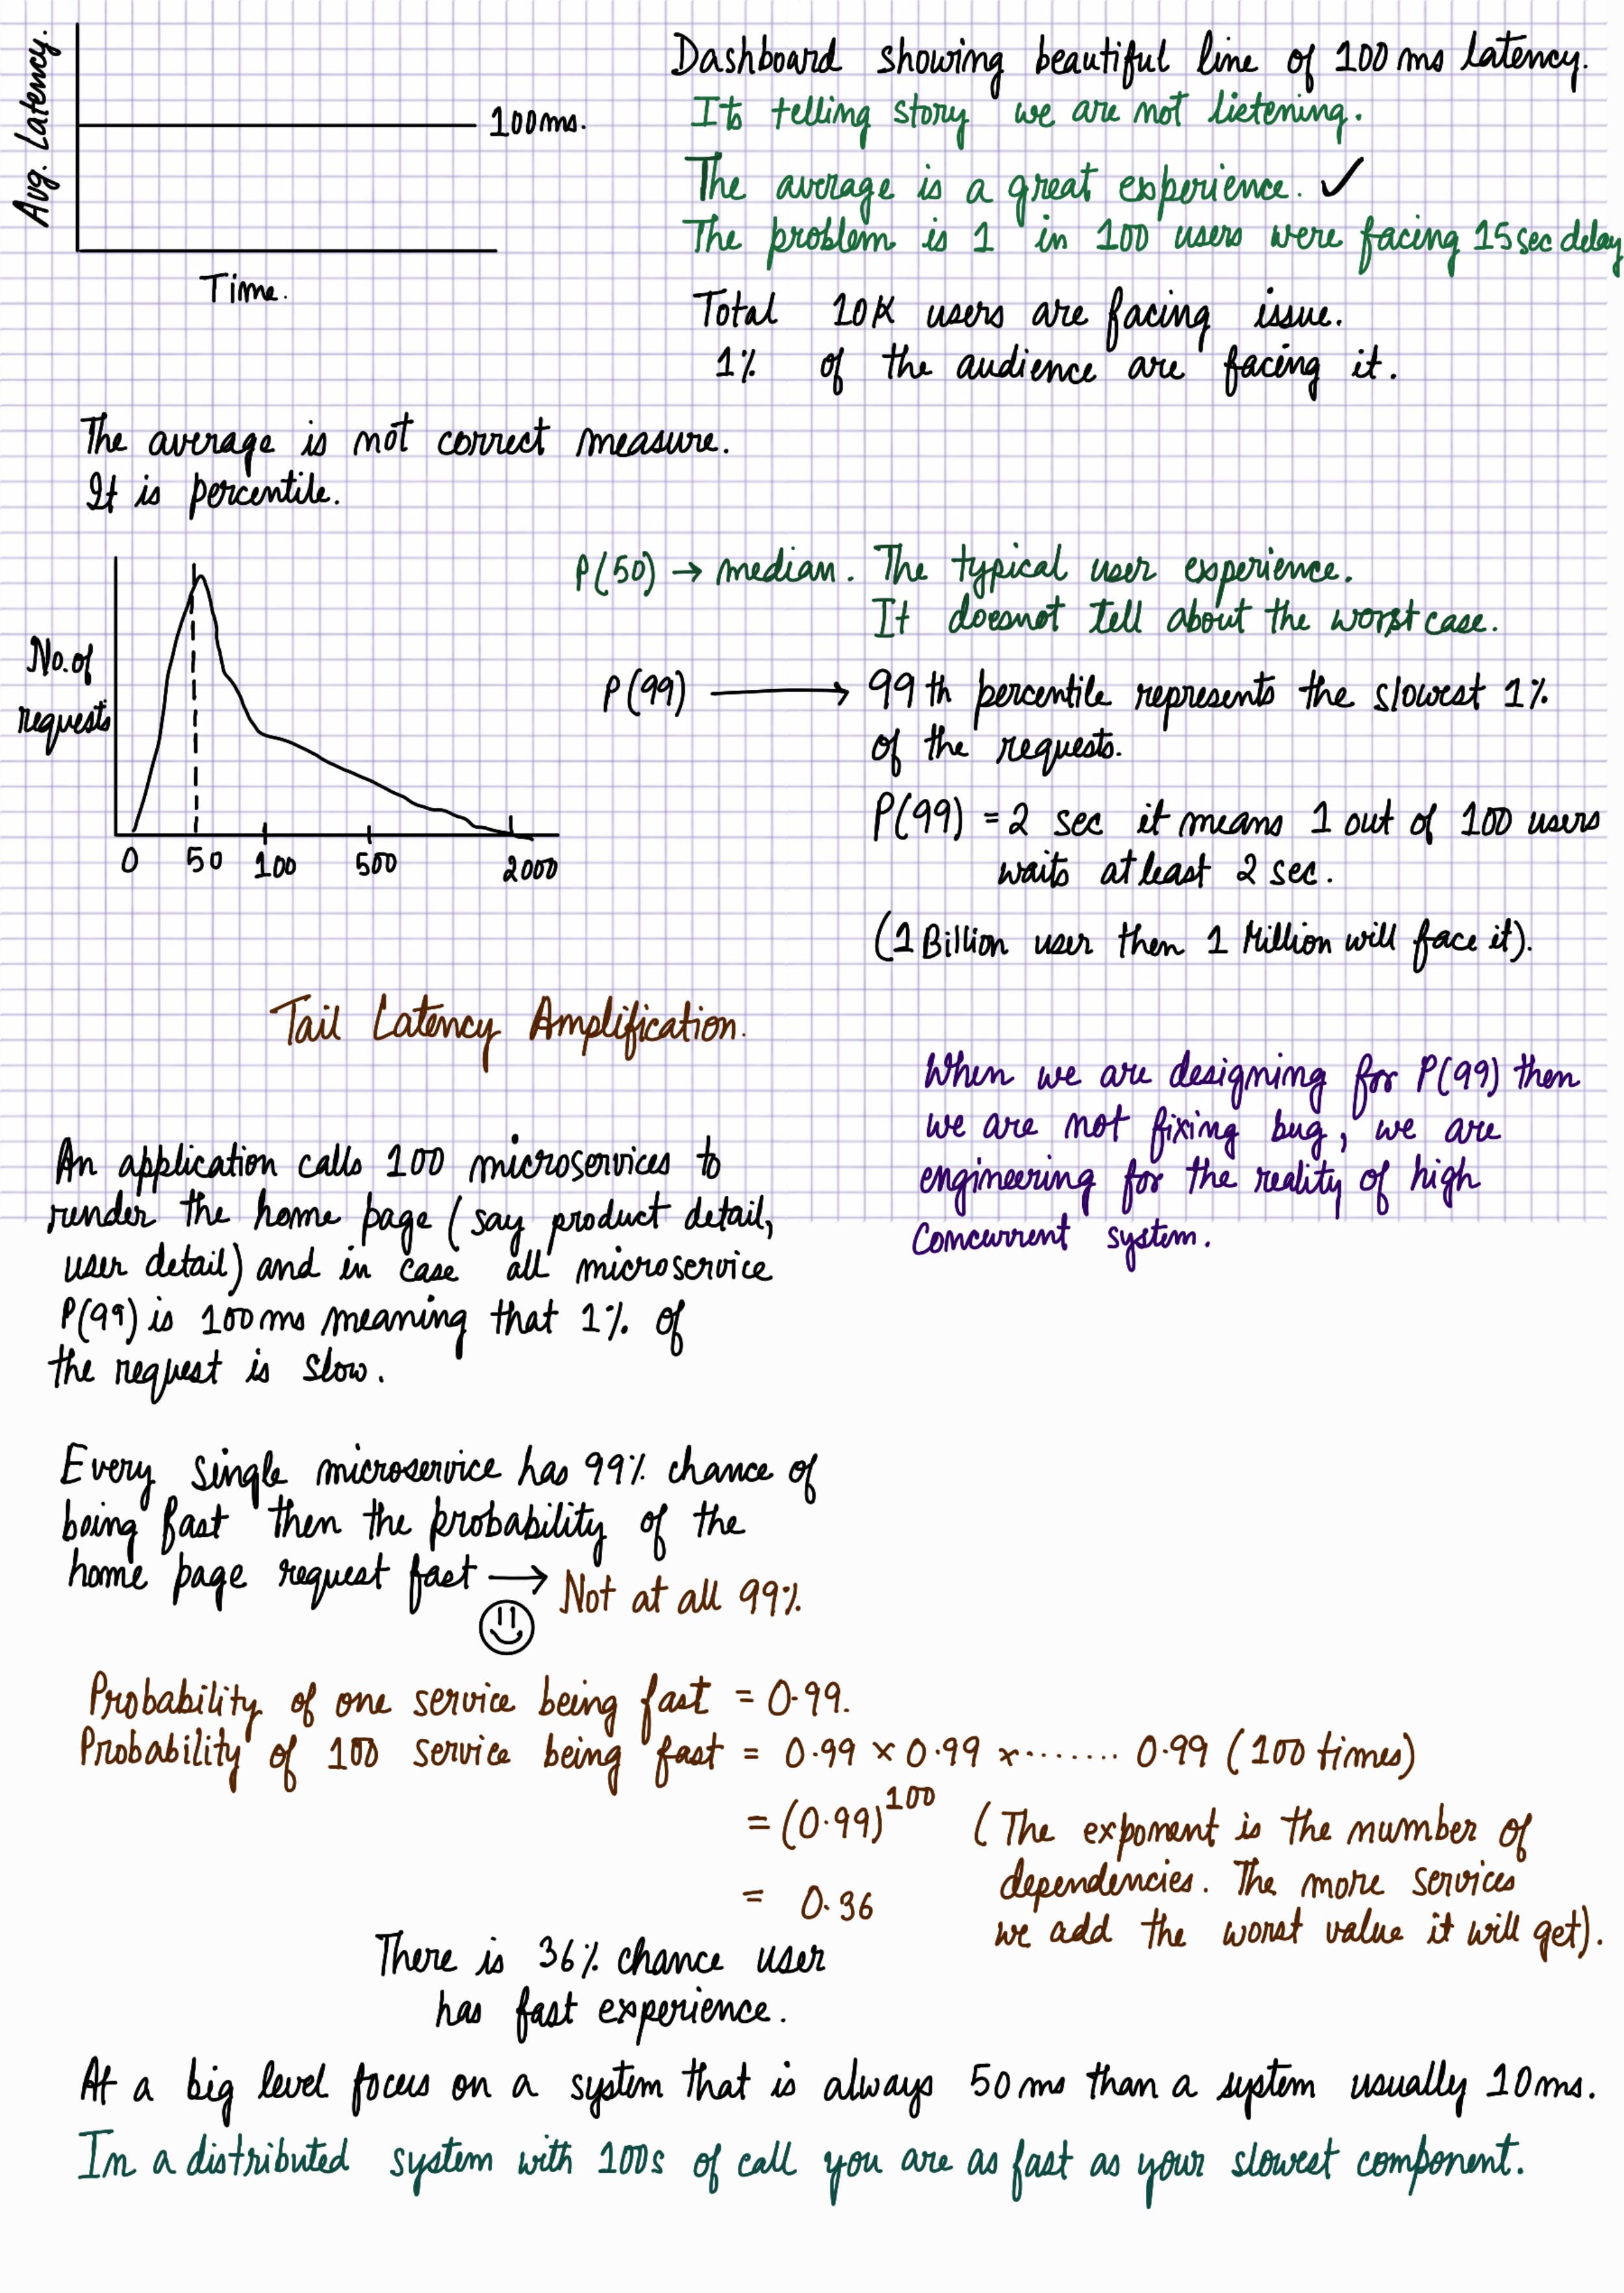 Avg. Latency.
100ms.
Time.
Dashboard showing beautiful line of 100 ms latency.
Its telling story we are not listening.
The average is a great experience. ✓
The problem is 1 in 100 users were facing 15 sec delay
Total 10K users are facing issue.
1% of the audience are facing it.
The average is not correct measure.
It is percentile.
No. of
requests
0 50 100 500 2000
P(50) → median. The typical user experience.
It doesnot tell about the worst case.
P(99) → 99 th percentile represents the slowest 1%
of the requests.
P(99) = 2 sec it means 1 out of 100 users
waits atleast 2 sec.
(1 Billion user then 1 Million will face it).
Tail Latency Amplification.
When we are designing for P(99) then
we are not fixing bug, we are
engineering for the reality of high
concurrent system.
An application calls 100 microservices to
render the home page (say product detail,
user detail) and in case all microservice
P(99) is 100ms meaning that 1% of
the request is slow.
Every single microservice has 99% chance of
being fast then the probability of the
home page request fast → Not at all 99%
Probability of one service being fast = 0.99.
Probability of 100 service being fast = 0.99 × 0.99 ×........ 0.99 (100 times)
= (0.99)^100 (The exponent is the number of
dependencies. The more services
we add the worst value it will get).
= 0.36
There is 36% chance user
has fast experience.
At a big level focus on a system that is always 50 ms than a system usually 10ms.
In a distributed system with 100s of call you are as fast as your slowest component.